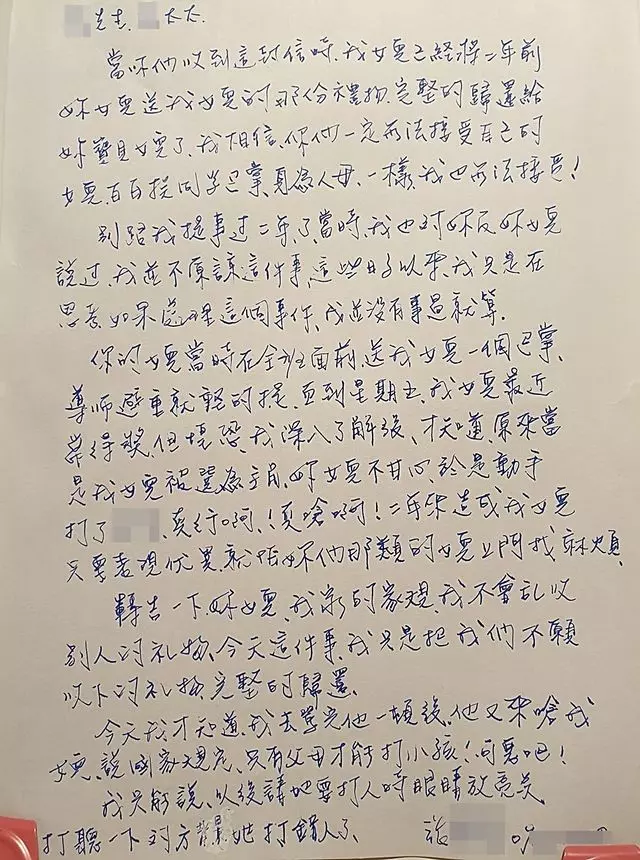 先生. 太太.
當你們收到這封信時.我女兒已經將二年前
妳女兒送我女兒的那份禮物.完整的歸還給
妳寶貝女兒了.我相信.你們一定無法接受自己的
女兒.百百挨同学巴掌.身為人母.一樣.我也無法接受!
別跟我提事过二年了.當時.我也对妳及妳女兒
說过.我並不原諒這件事.這些日子以來.我只是在
思考如果處理這個事件.我並没有事過就算.
你的女兒當時在全班面前.送我女兒一個巴掌.
導師避重就輕的提.直到星期五.我女兒最近
常得獎.但壞恐.我深入了解後.才知道.原來當
是我女兒被選為.妳女兒不甘心.於是動手
打了 .真行啊.!真嗆啊!二年來造成我女兒
只要表現优異.就怕妳他那類的女兒上門找麻煩.
轉告一下.妳女兒.我家的家規.我不會乱收
別人的礼物.今天這件事.我只是把我們不願
收下的礼物.完整的歸還.
今天我才知道.我去掌完他一頓後.他又來嗆我
女兒.說國家規定.只有父母才能打小孩!可惡吧!
我只能說.以後請她要打人時眼睛放亮点.
打聽一下对方 她打錯人了.
09